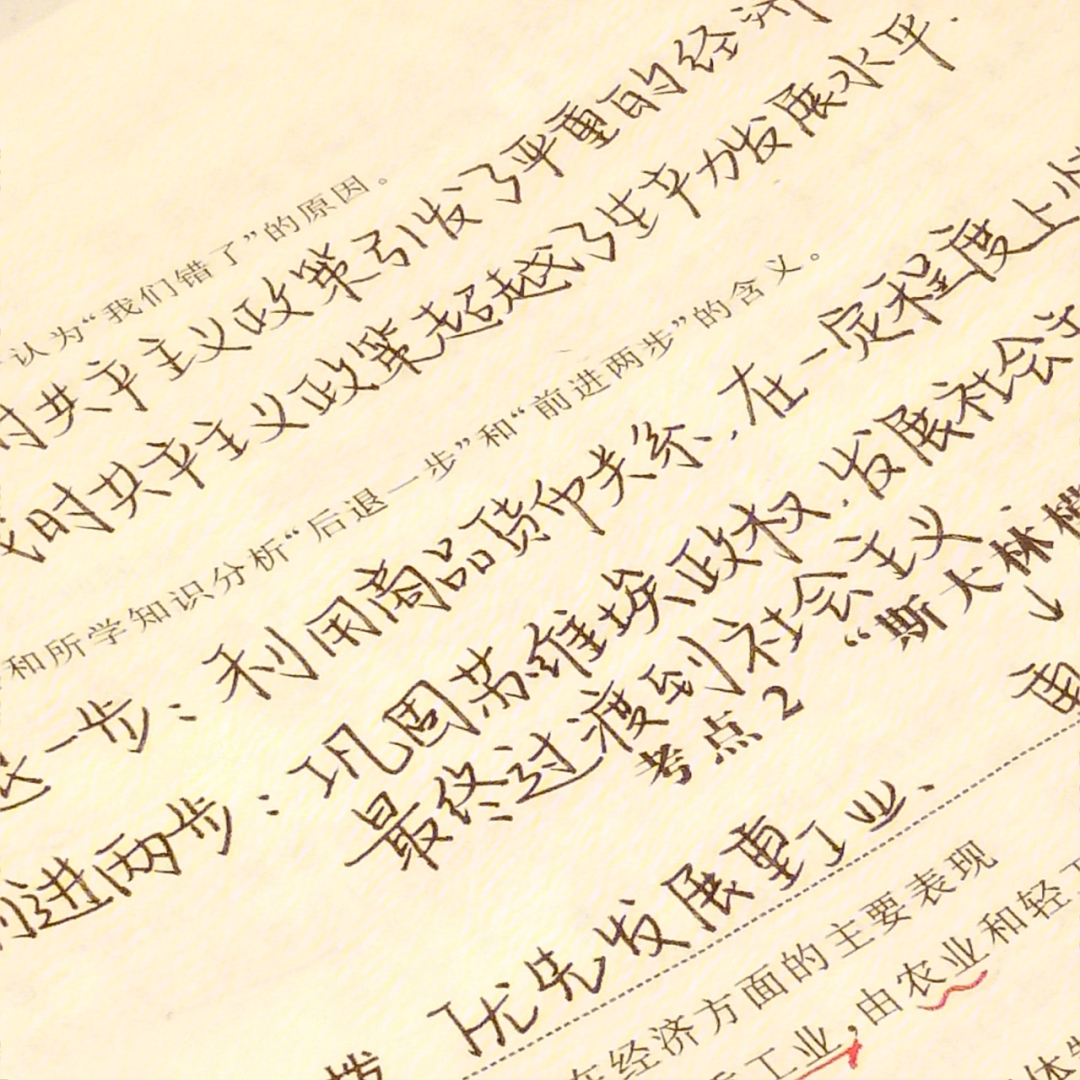 认为“我们错了”的原因。
时共产主义政策引发了严重的经济
时共产主义政策超越了生产力发展水平.
和所学知识分析“后退一步”和“前进两步”的含义。
退一步:利用商品货币关系,在一定程度上
前进两步:巩固苏维埃政权,发展社会
最终过渡到社会主义
考点2
“斯大林模
↓
优先发展重工业、
拨
在经济方面的主要表现
工业,由农业和轻工
体制